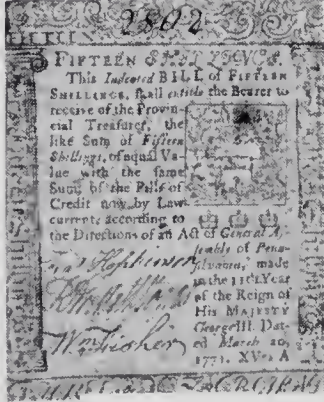 2802
FIFTEEN SHILLINGS.
This Indented BILL of FIFTEEN
SHILLINGS, shall entitle the Bearer to
receive of the Provin-
cial Treasurer, the
like Sum of Fifteen
Shillings, of equal Va-
lue with the same
Sum of the Bills of
Credit now by Law
current, according to
the Directions of an Act of General As-
sembly of Penn-
sylvania, made
in the 11th Year
of the Reign of
His MAJESTY
George III. Dat-
ed March 20,
1771. XVs. A
Wm Fisher